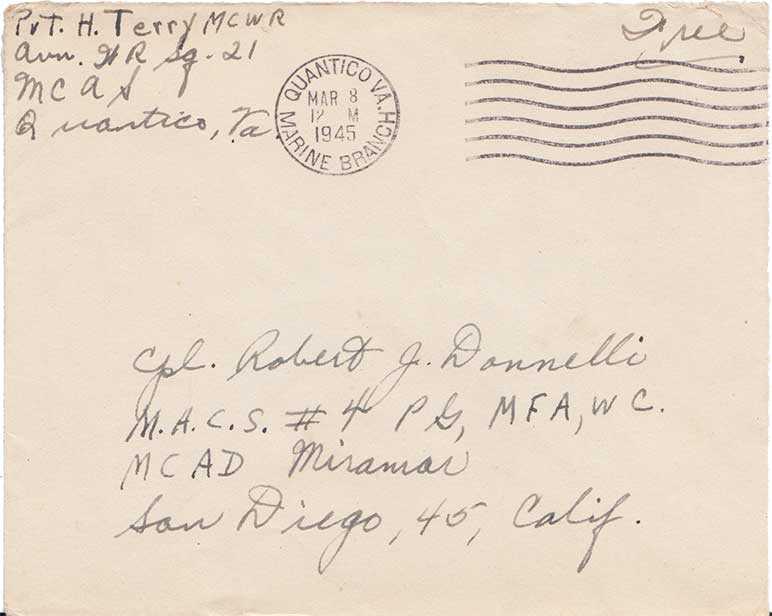 Pvt. H. Terry MCWR
Avn. HR Sq. 21
MCAS
Quantico, Va
QUANTICO VA. MARINE BRANCH
MAR 8
12 M
1945
Free
Cpl. Robert J. Donnelli
M.A.C.S. #4 PG, MFA, WC.
MCAD Miramar
San Diego, 45, Calif.